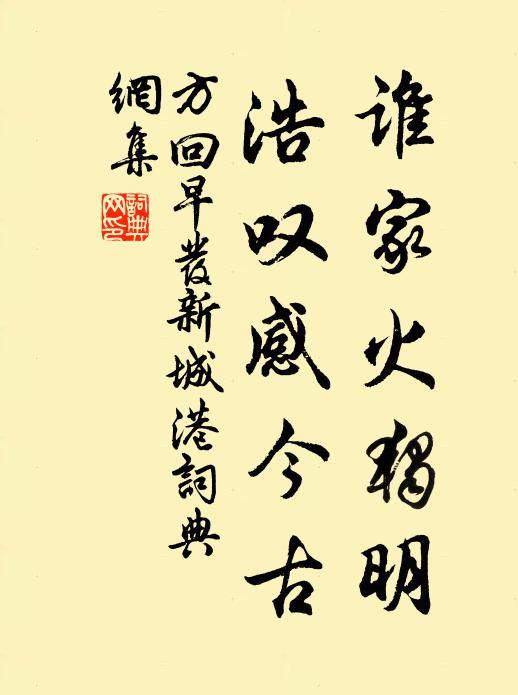 谁家火独明
浩叹感今古
方回早發新城港詞典
網集
詞典
网印